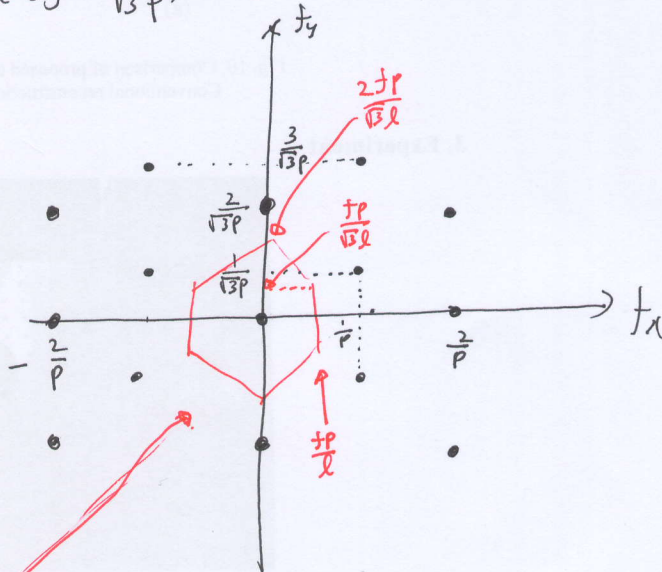 √3 P
f_y
2fP/√3 l
3/√3P
2/√3P
fP/√3 l
1/√3P
f_x
-2/P
1/P
2/P
fP/l